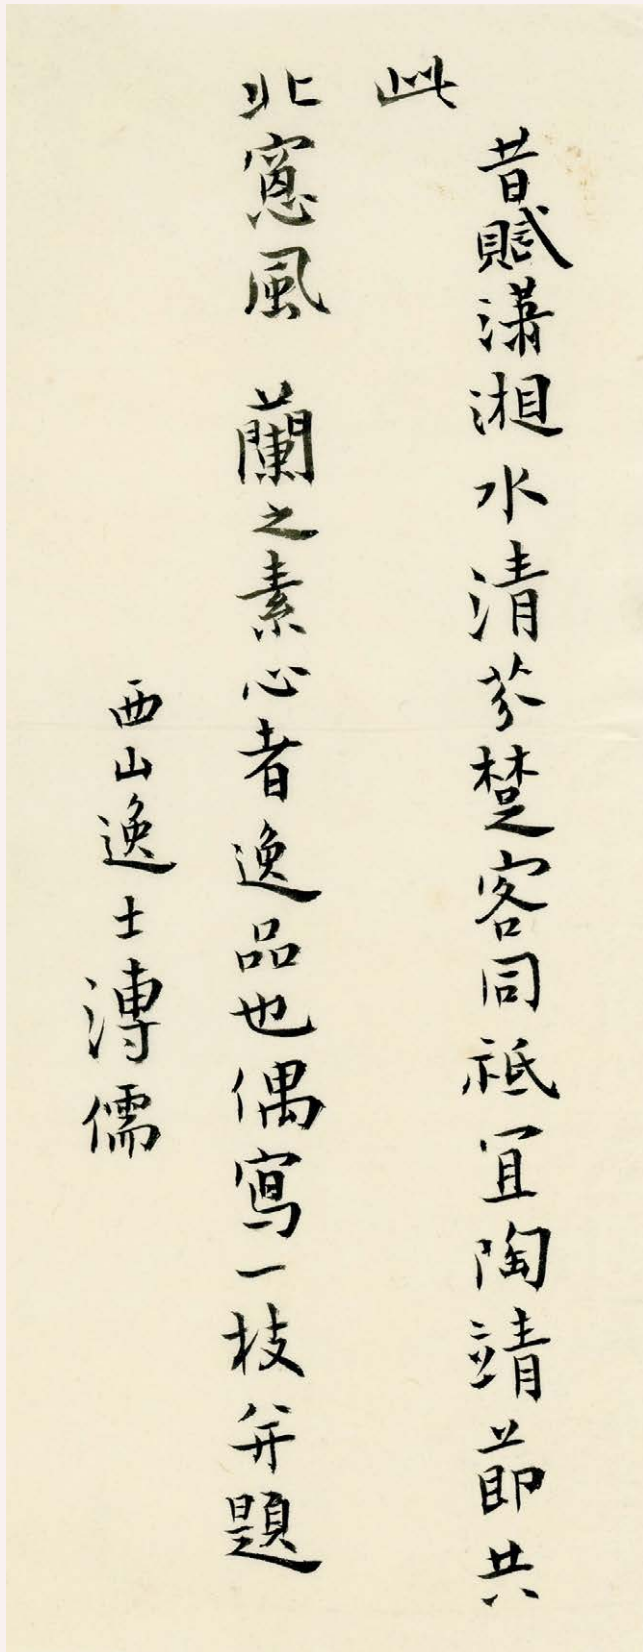 昔賦瀟湘水清芬楚客同祗宜陶靖節共
此
北窻風 蘭之素心者逸品也偶寫一枝并題
西山逸士溥儒